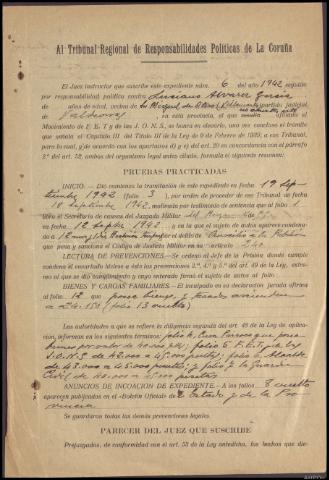 Al Tribunal Regional de Responsabilidades Políticas de La Coruña
El Juez instructor que suscribe este expediente núm. 6 del año 1942 seguido
por responsabilidad política contra Luciano Alvarez Garcia
de años de edad, vecino de
Valdeorras, en esta provincia, el que
Movimiento de F. E. T. y de las J. O. N. S., se honra en elevarlo, una vez concluso el trámite
que señala el Capítulo III del Título III de la Ley de 9 de Febrero de 1939, a ese Tribunal,
para lo cual, y de acuerdo con los apartados d) y e) del art. 29 en concordancia con el párrafo
2.º del art. 52, ambos del organismo legal antes citado, formula el siguiente resumen:
PRUEBAS PRACTICADAS
INICIO.—Dió comienzo la tramitación de este expediente en fecha 19 Sep-
tiembre 1942 (folio 3), por orden de proceder de ese Tribunal de fecha
18 Septiembre 1942, motivado en testimonio de sentencia que al folio 1
libra el Secretario de causas del Juzgado Militar
en fecha 12 Septbre 1942 y en la que el sujeto de autos aparece condena-
do a 12 el delito de a la Rebelión
que pena y sanciona el Código de Justicia Militar en su artículo 240
LECTURA DE PREVENCIONES.—Se ordenó al Jefe de la Prisión donde cumple
condena el encartado librase a éste las prevenciones 2.ª, 4.ª y 5.ª del art. 49 de la Ley, extre-
mo al que se dió cumplimiento y cuyo enterado firmó el sujeto de autos al folio
BIENES Y CARGAS FAMILIARES.—El inculpado en su declaración jurada afirma
al folio 12 que posee bienes, y ascienden
a 24.150 (folio 13 vuelto)
Las autoridades a que se refiere la diligencia segunda del art. 48 de la Ley de aplica-
ción, informan en los siguientes términos: folio 4, Cura Párroco que posee
bienes por valor de folio 5 F.E.T. y de las
J.O.N.S de 42.000 a 45.000 pesetas; folio 6 Alcalde
de 43.000 a 45.000 pesetas, y folio 7 la Guardia
Civil de
ANUNCIOS DE INCOACIÓN DE EXPEDIENTE.—A los folios 8 vuelto
aparecen publicados en el «Boletín Oficial» del Estado y de la Pro-
vincia
Se guardaron todas las demás prevenciones legales.
PARECER DEL JUEZ QUE SUSCRIBE
Prejuzgados, de conformidad con el art. 53 de la Ley antedicha, los hechos que die-